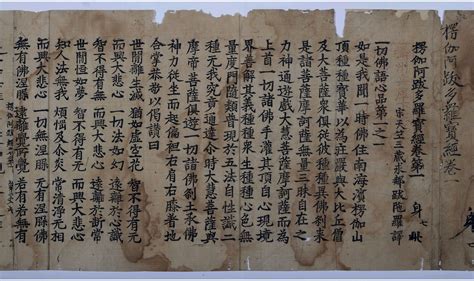 楞伽阿跋多羅寶經卷一
楞伽阿跋多羅寶經第一
宋天竺三藏求那跋陀羅譯
一切佛語心品第一之一
如是我聞一時佛住南海濱楞伽山
頂種種寶華以為莊嚴與大比丘僧
及大菩薩眾俱從彼種種異佛剎來
是諸菩薩摩訶薩無量三昧自在之
力神通遊戲大慧菩薩摩訶薩而為
上首一切諸佛手灌其頂自心現境
界善解其義種種眾生種種心色無
量度門隨類普現於五法自性識二
種無我究竟通達爾時大慧菩薩與
摩帝菩薩俱遊一切諸佛剎土承佛
神力從坐而起偏袒右肩右膝著地
合掌恭敬以偈讚曰
世間離生滅 猶如虛空花 智不得有無
而興大悲心 一切法如幻 遠離於心識
智不得有無 而興大悲心 遠離於斷常
世間恒如夢 智不得有無 而興大悲心
知人法無我 煩惱及尒炎 常清淨無相
而興大悲心 一切無涅槃 無有涅槃佛
無有佛涅槃 遠離覺所覺 若有若無有